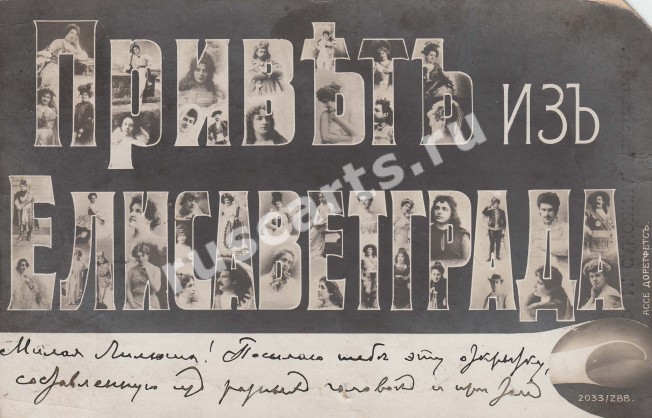 Привѣтъ изъ
Елисаветграда
Милая Милюша! Посылаю тебѣ эту открытку,
составленную изъ разныхъ головокъ и при
АССЕ ДОРЕТФЕТСЪ
2033/288.
ruscerts.ru